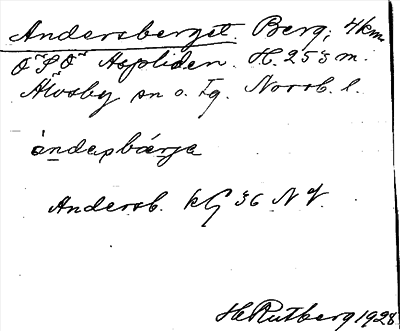 Andersberget. Berg, 4 km
ÖSÖ Aspliden. H. 253 m.
Älvsby sn o. tg. Norrb. l.
àndaṣbærja
Andersb. kG 36 NV.
H. Rutberg 1928